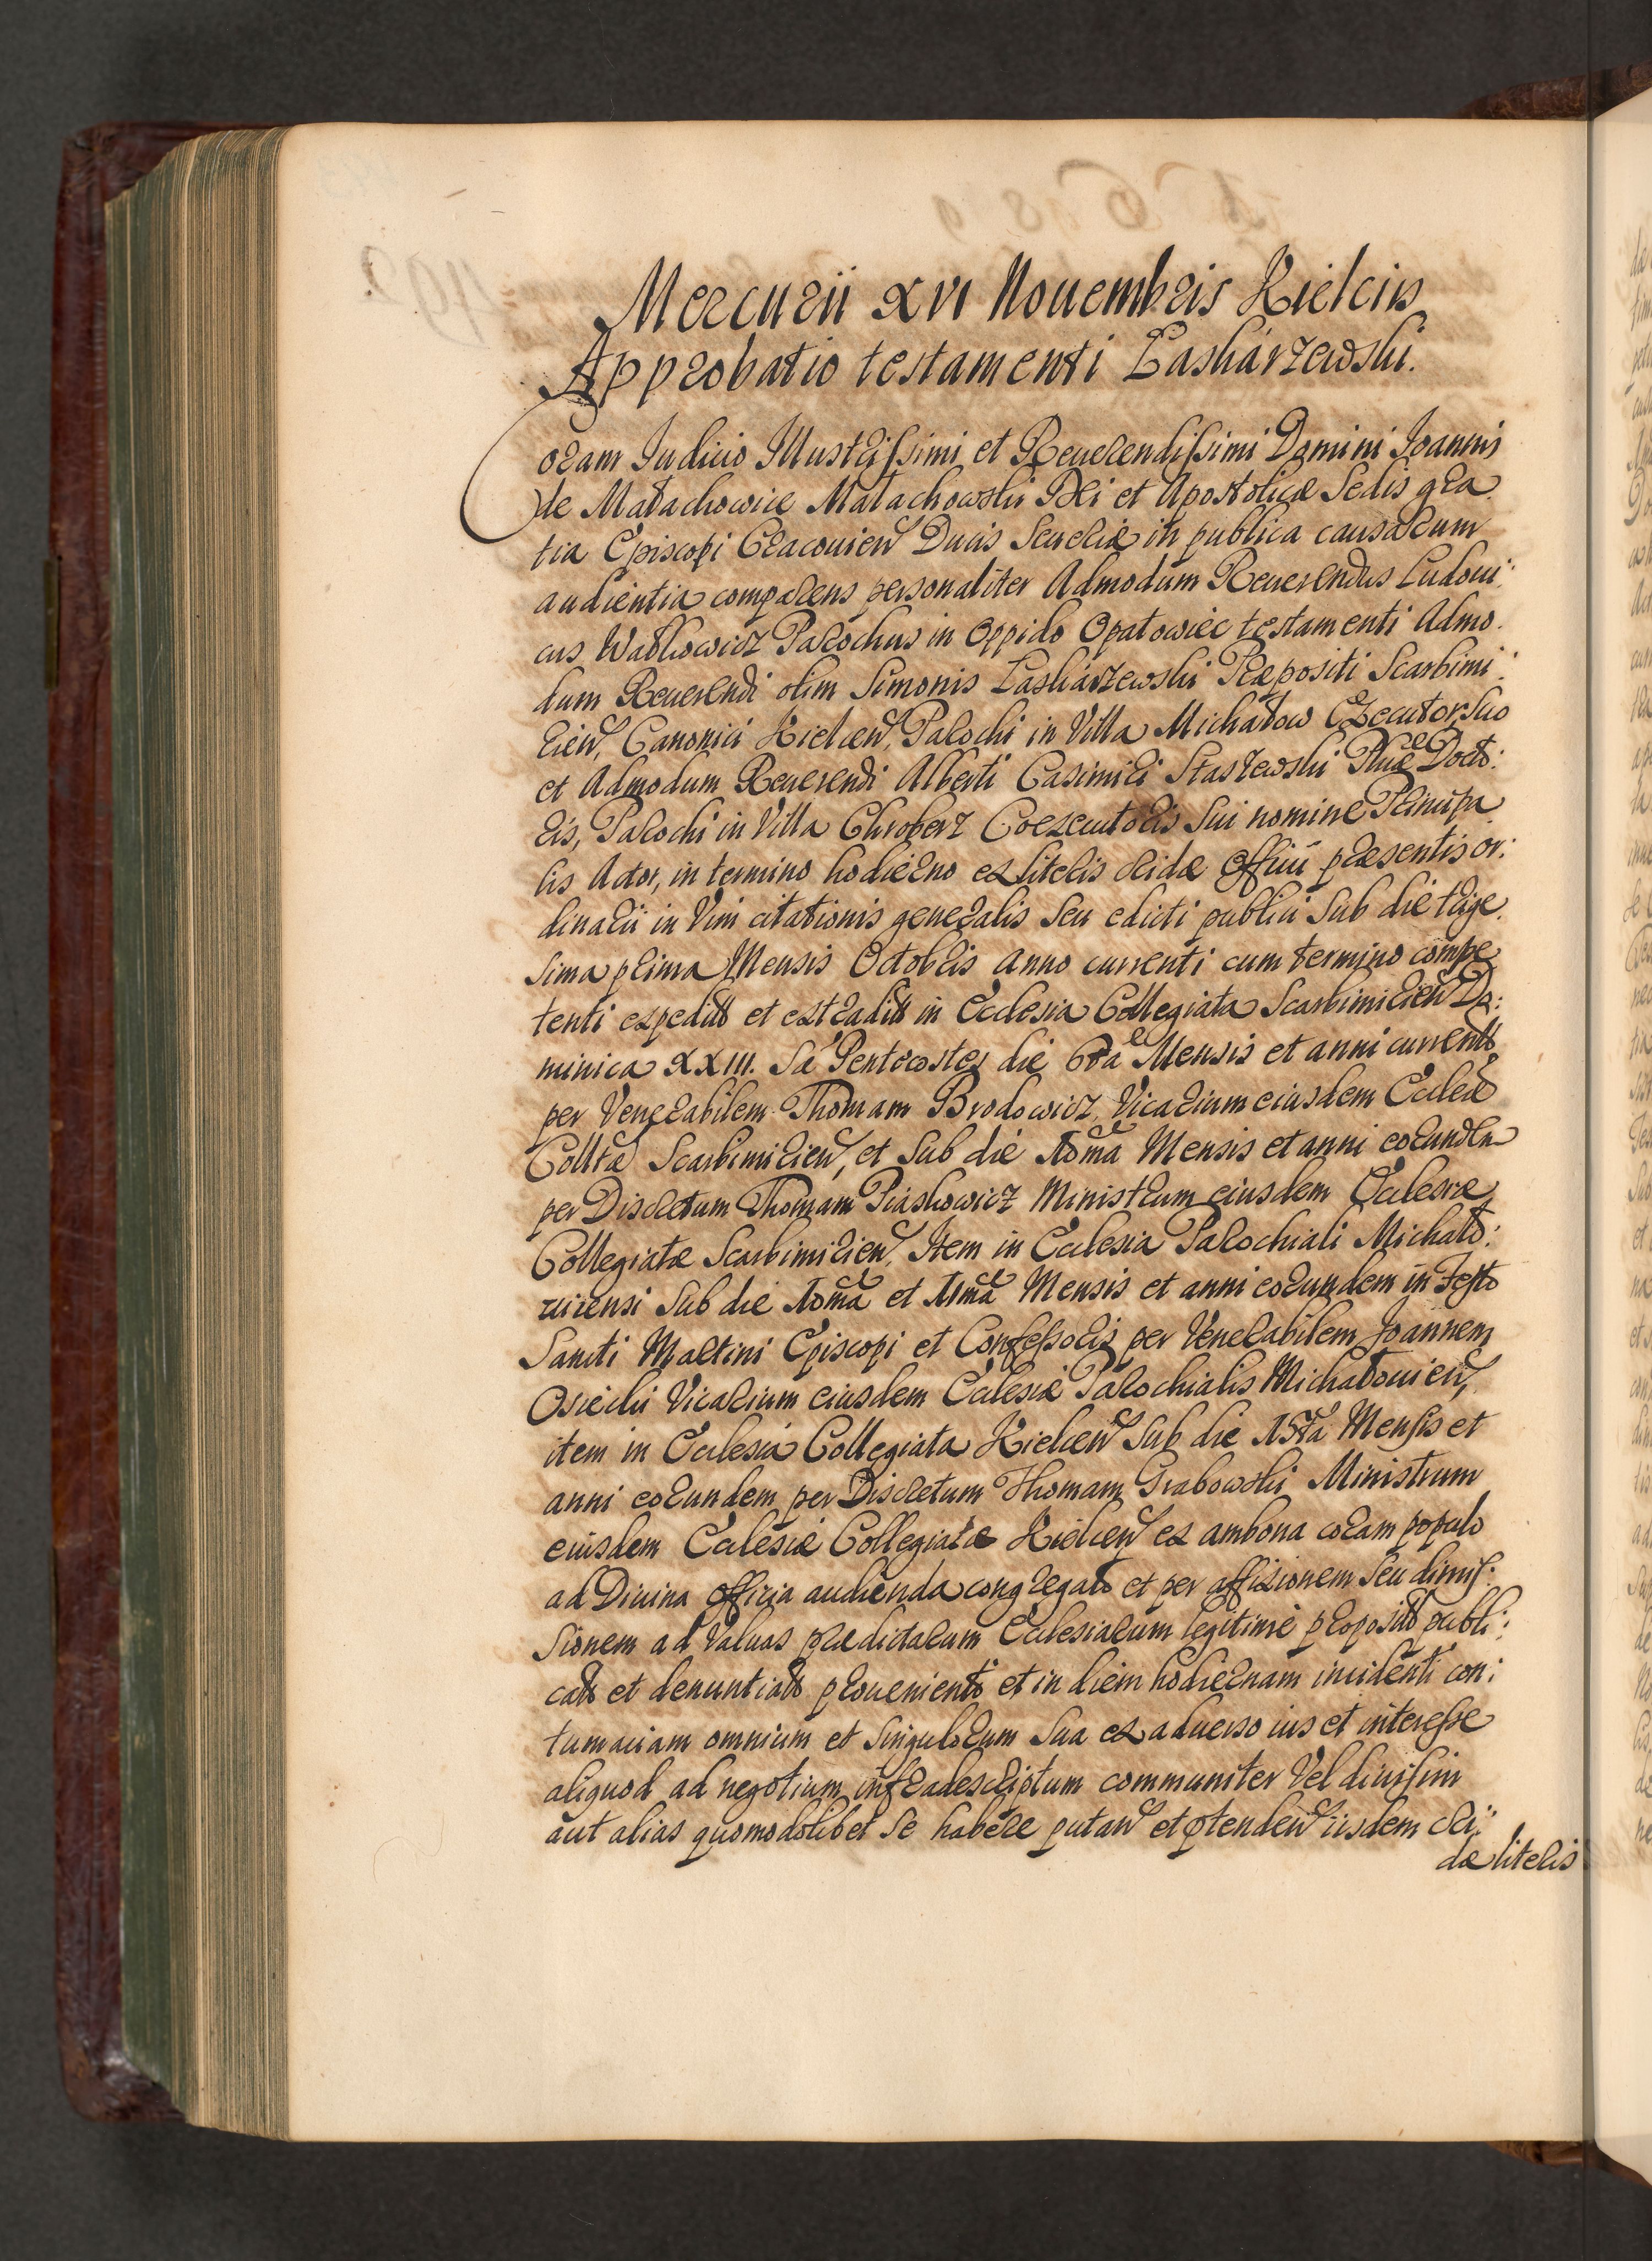 Mercurii XVI Nouembris Kielciis
Approbatio testamenti Łaskárzewski.
Coram Iudicio Illustrissimi et Reuerendissimi Domini Joannis
de Małachowice Małachowski Dei et Apostolicæ Sedis gra
tia Episcopi Cracouien Ducis Seueriæ in publica causarum
audientia comparens personaliter Admodum Reuerendus Ludoui:
cus Wałkowicz Parochus in Oppido Opatowiec testamenti Admo
dum Reuerendi olim Simonis Łaskárzewski Præpositi Scarbimi:
rien, Canonici Kielcen, Parochi in Villa Michałow Executor suo
et Admodum Reuerendi Alberti Casimiri Staszewski Phiæ Docto:
ris, Parochi in Villa Chroberz Coexecutoris sui nomine Principa
lis Actor, in termino hodierno ex literis cridæ Officii præsentis or:
dinarii in Vim citationis generalis seu edicti publici sub die trige
sima prima Mensis Octobris anno currenti cum termino compe
tenti expedits et extradits in Ecclesia Collegiata Scarbimirien Do:
minica XXIII. Sa Pentecostes die 6ta Mensis et anni currents
per Venerabilem Thomam Brodowicz Vicarium eiusdem Eccleæ
Colltæ Scarbimirien, et sub die 10ma Mensis et anni eorundem
per Discretum Thomam Piaskowicz Ministrum eiusdem Ecclesiæ
Collegiatæ Scarbimirien. Item in Ecclesia Parochiali Michało:
uiensi sub die 10ma et 11ma Mensis et anni eorundem in Festo
Sancti Martini Episcopi et Confessoris per Venerabilem Joannem
Osiecki Vicarium eiusdem Ecclesiæ Parochialis Michałouien,
item in Ecclesia Collegiata Kielcen sub die 15ta Mensis et
anni eorundem per Discretum Thomam Grabowski Ministrum
eiusdem Ecclesiæ Collegiatæ Kielcen ex ambona coram populo
ad Diuina officia audienda congregato et per affixionem seu dimis:
sionem ad Valuas prædictarum Ecclesiarum legitime proposits publi:
cats et denuntiats prouenienti et in diem hodiernam incidenti con:
tumaciam omnium et singulorum sua ex aduerso ius et interesse
aliquod ad negotium infradescriptum communiter Vel diuisim
aut alias quomodolibet se habere putan et ptenden iisdem cri:
dæ literis